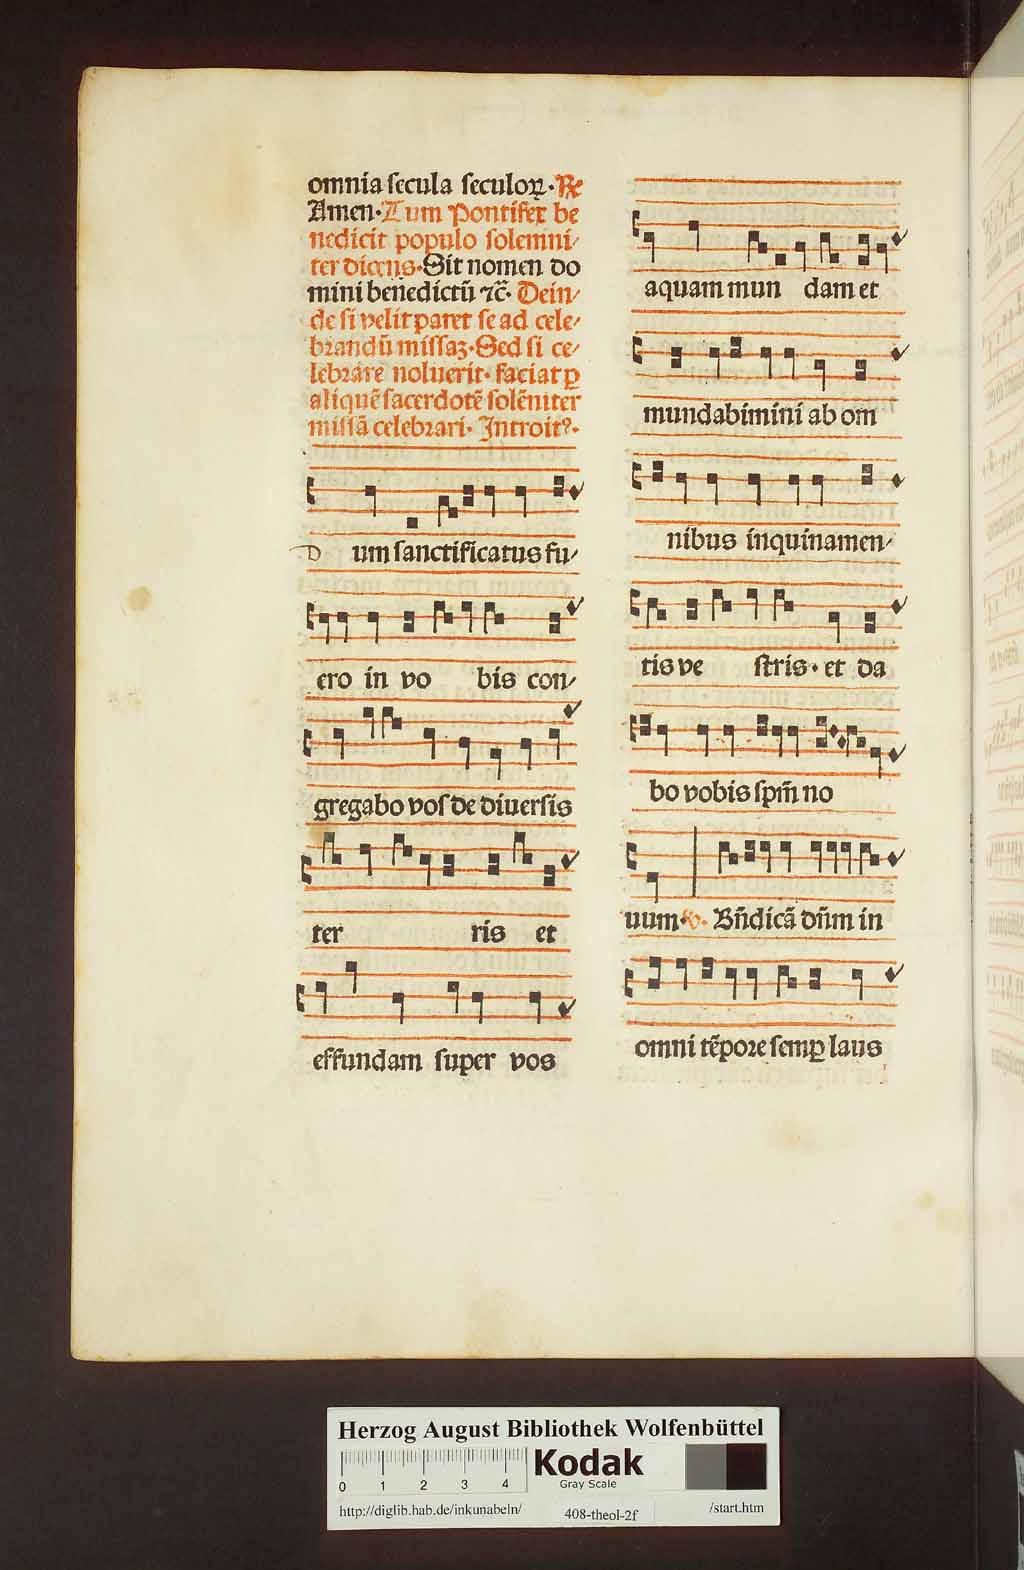 omnia secula seculoꝝ. ℟
Amen. Tum Pontifex be
nedicit populo solemni/
ter dicens. Sit nomen do
mini benedictū ⁊c̄. Dein/
de si velit paret se ad cele/
brandū missaꝫ. Sed si ce/
lebrare noluerit. faciat ꝑ
aliquē sacerdotē solēniter
missā celebrari. Introitꝰ.
D um sanctificatus fu/
ero in vo bis con/
gregabo vos de diuersis
ter ris et
effundam super vos
aquam mun dam et
mundabimini ab om
nibus inquinamen/
tis ve stris. et da
bo vobis spm̄ no
uum. ℣. Bn̄dicā dn̄m in
omni tēpore semꝑ laus
Herzog August Bibliothek Wolfenbüttel
0 1 2 3 4
Kodak
Gray Scale
http://diglib.hab.de/inkunabeln/ 408-theol-2f /start.htm